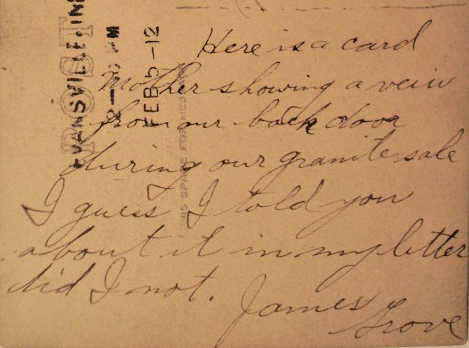 Here is a card
Mother showing a veiw
from our back door
during our granite sale
I guess I told you
about it in my letter
did I not.
James
Grove
EVANSVILLE, IND
FEB 5-12
POST